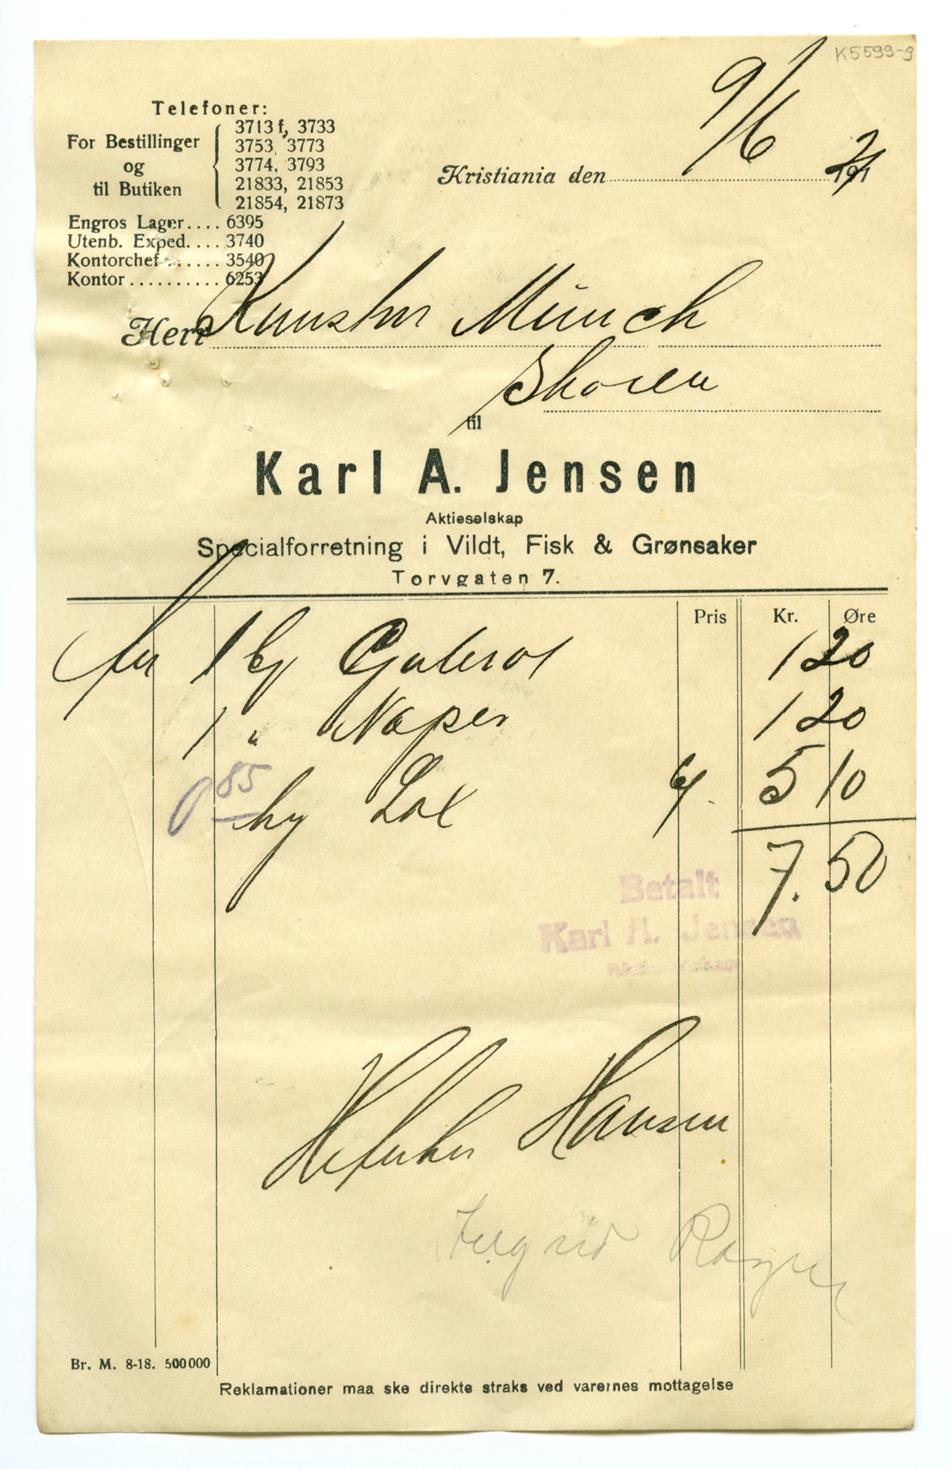 K5599-9
Telefoner:
For Bestillinger og til Butiken
3713 f, 3733
3753, 3773
3774, 3793
21833, 21853
21854, 21873
Engros Lager.... 6395
Utenb. Exped.... 3740
Kontorchef ...... 3540
Kontor .......... 6253
Kristiania den 9/6 21
Herr Kunstner Münch
Skøien
til
Karl A. Jensen
Aktieselskap
Specialforretning i Vildt, Fisk & Grønsaker
Torvgaten 7.
Pris Kr. Øre
1 Gulerot 1 20
1 " Neper 1 20
0 85 kg Lax 6/ 5 10
7.50
Betalt
Karl A. Jensen
Aktieselskap
Hansen
Ingrid
Br. M. 8-18. 500000
Reklamationer maa ske direkte straks ved varernes mottagelse